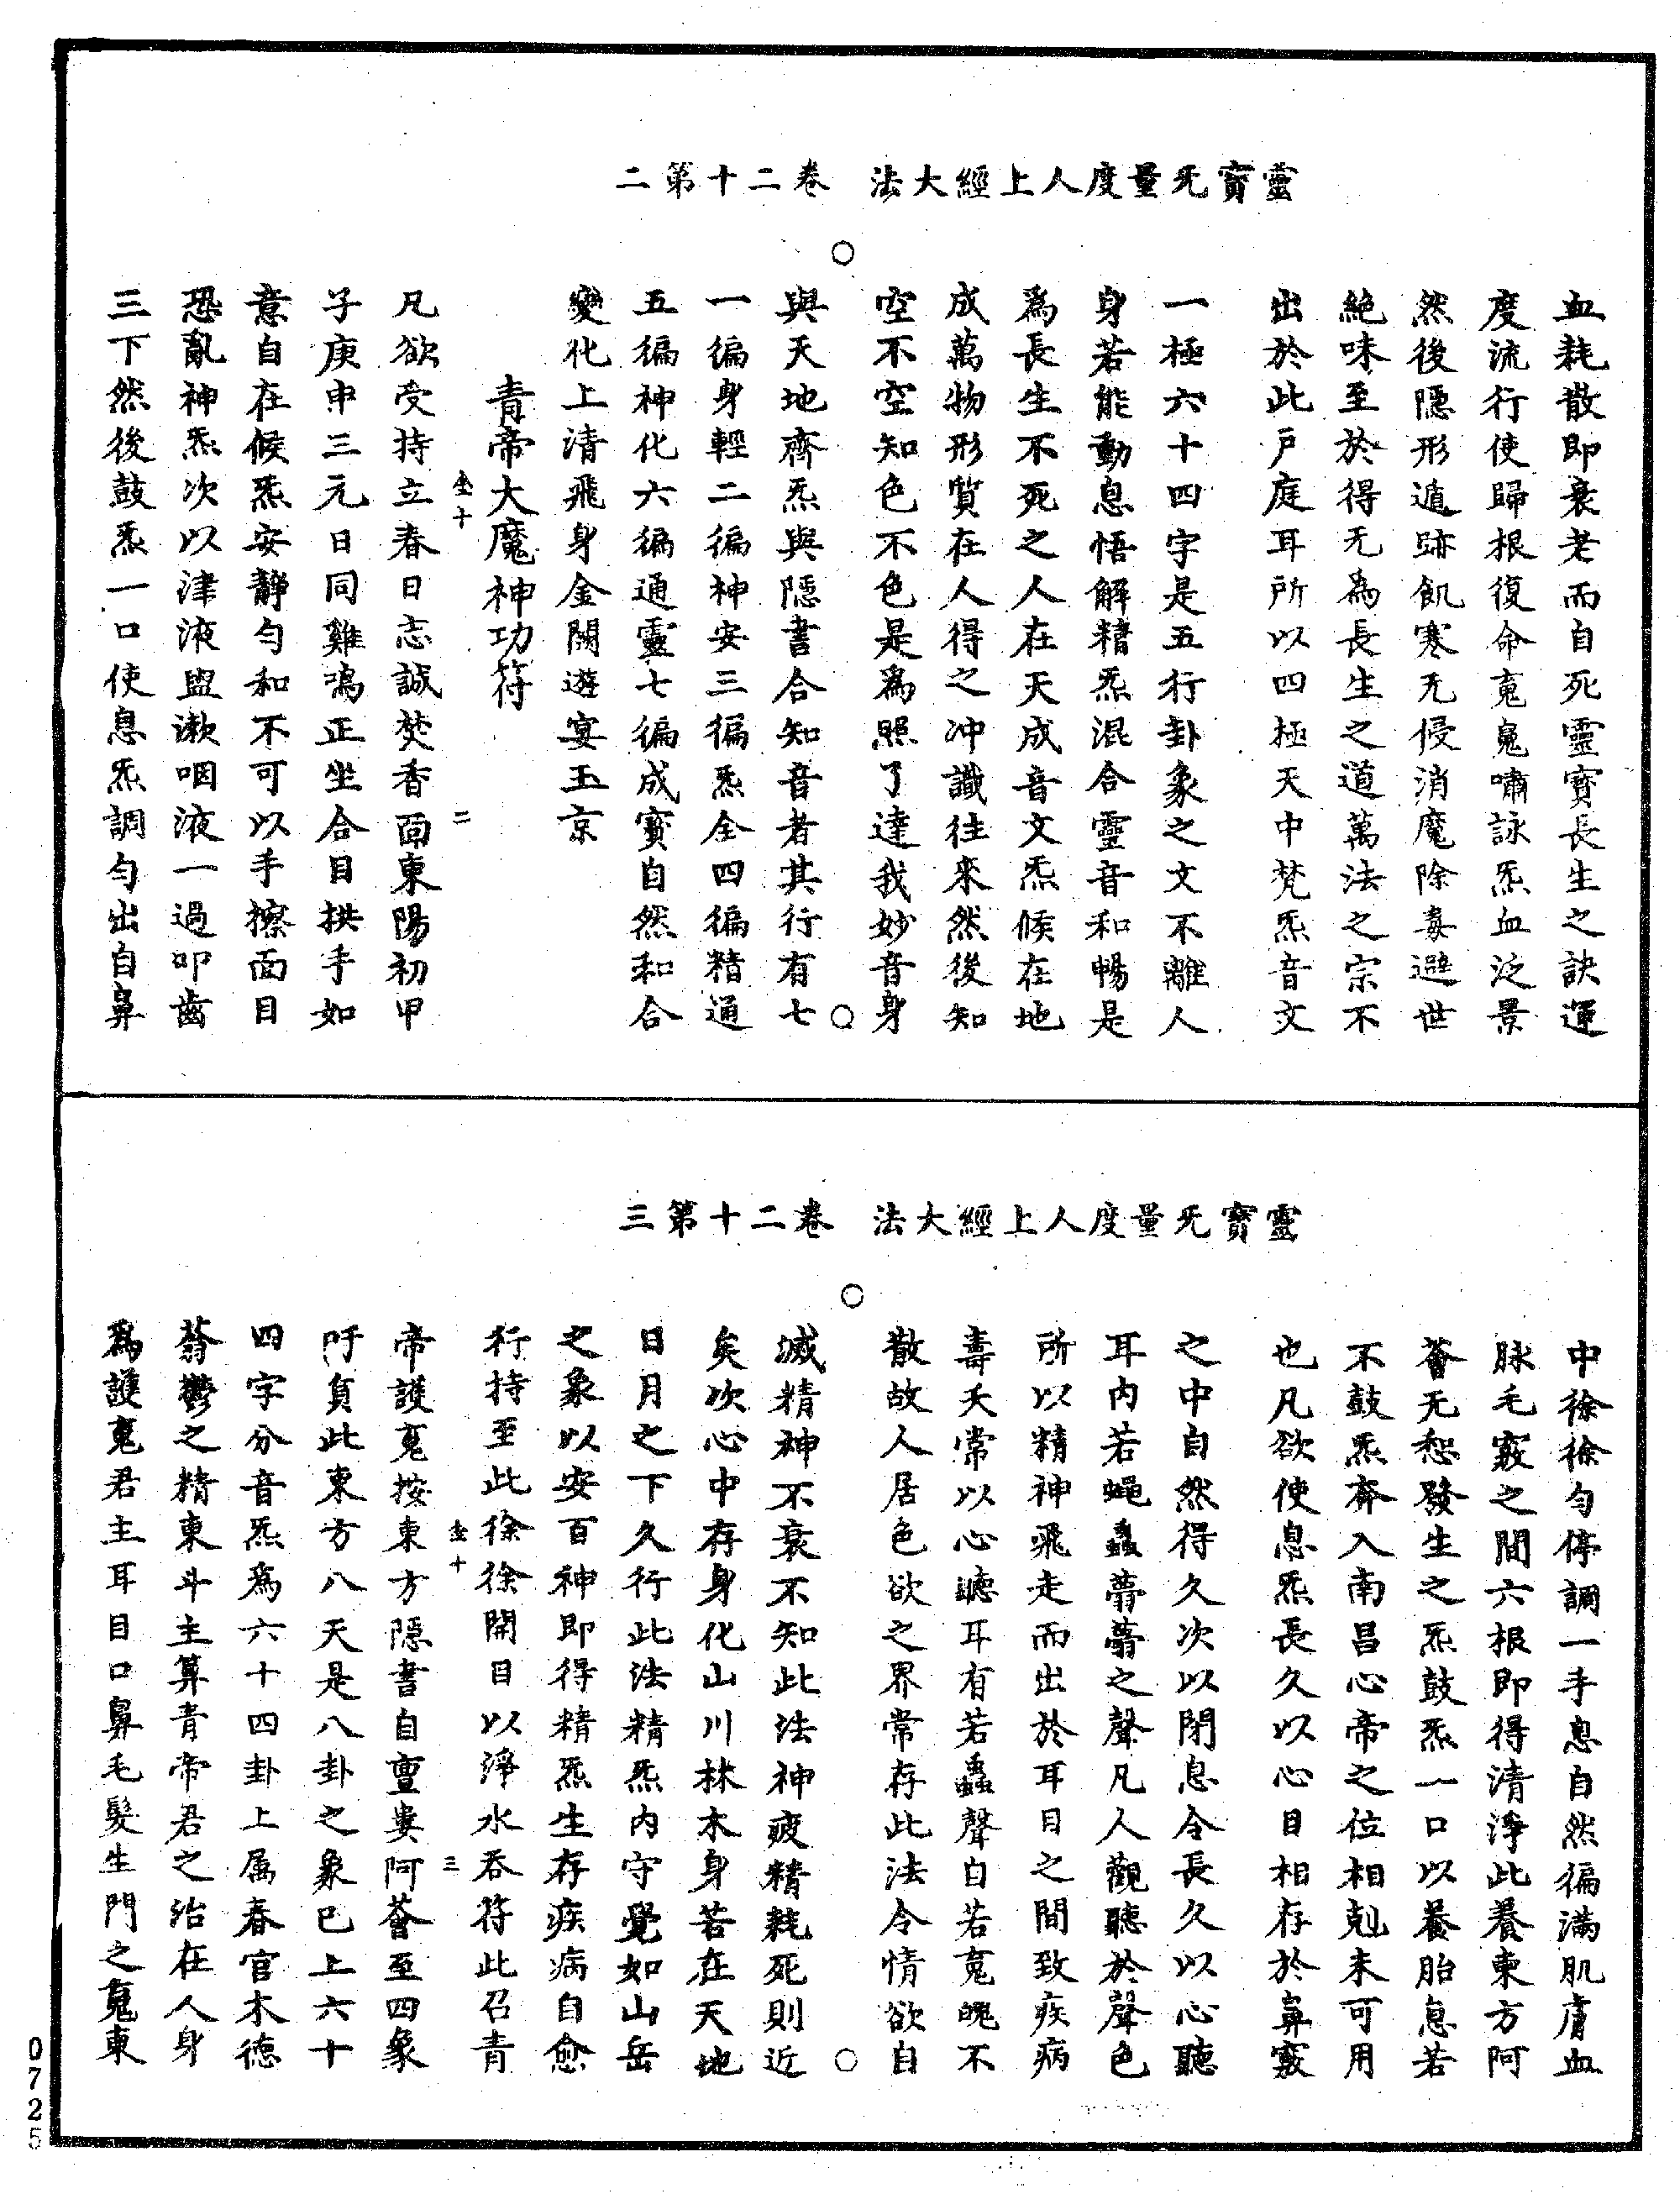 靈寶无量度人上經大法　卷二十第二
血耗散即衰老而自死靈寶長生之訣運
度流行使歸根復命䰟䰟嘯詠炁血泛景
然後隱形遁跡飢寒无侵消魔除毒避世
絶味至於得无為長生之道萬法之宗不
出於此戶庭耳所以四極天中梵炁音文
一極六十四字是五行卦象之文不離人
身若能動息悟解精炁混合靈音和暢是
為長生不死之人人在天成音文炁候在地
成萬物形質在人得之冲識往來然後知
空不空空知色不色是爲照了達我妙音身
與天地齊炁與隱書合知音者其行有七
一徧身輕二徧神安三徧炁全四徧精通
五徧神化六徧通靈七徧成寶自然和合
變化上清飛身金闕遊宴玉京
青帝大魔神功符
坐十　二
凡欲受持立春日志誠焚香面東陽初甲
子庚申三元日同雞鳴正坐合目拱手如
意自在候炁安靜勻和不可以手擦面目
恐亂神炁次以津液盥漱咽液一過叩齒
三下然後鼓炁一口使息炁調勻出自鼻
靈寶无量度人上經大法　卷二十第三
中徐徐勻停調一手息自然徧滿肌膚血
脉毛竅之間六根即得清淨此養東方阿
薈无惒發生之炁鼓炁一口以養胎息若
不鼓炁奔入南昌心帝之位相剋未可用
也凡欲使息炁長久以心目相存於鼻竅
之中自然得久次以閉息令長久以心聽
耳内若蝇蟲薨薨之聲凡人觀聽於聲色
所以精神飛走而出於耳目之間致疾病
壽夭常以心聽耳有若蟲聲白若䰟魄不
散故人居色欲之界常存此法令情欲自
滅精神不衰不知此法神疲精耗死則近
矣次心中存身化山川林木身若在天地
日月之下久行此法精炁内守覺如山岳
之象以安百神即得精炁生存疾病自愈
行持至此徐徐開目以淨水吞符此召青
坐十　三
帝護䰟按東方隱書自亶婁阿薈至四象
吁員此東方八天是八卦之象巳上六十
四字分音炁爲六十四卦上属春官木德
蓊鬱之精東斗主算青帝君之治在人身
爲護䰟君主耳目口鼻毛髮生門之䰟東
0725